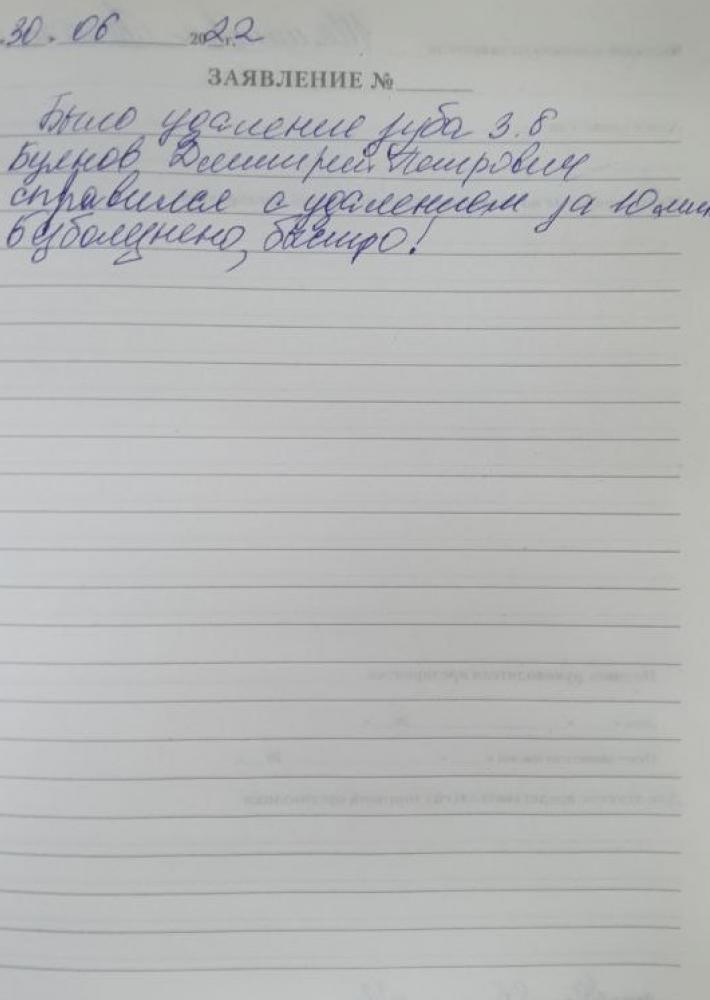 30. 06 2022г.
ЗАЯВЛЕНИЕ №
Было удаление зуба 3.8
Буянов Дмитрий Петрович
справился с удалением за 10 мин
безболезнено, быстро!